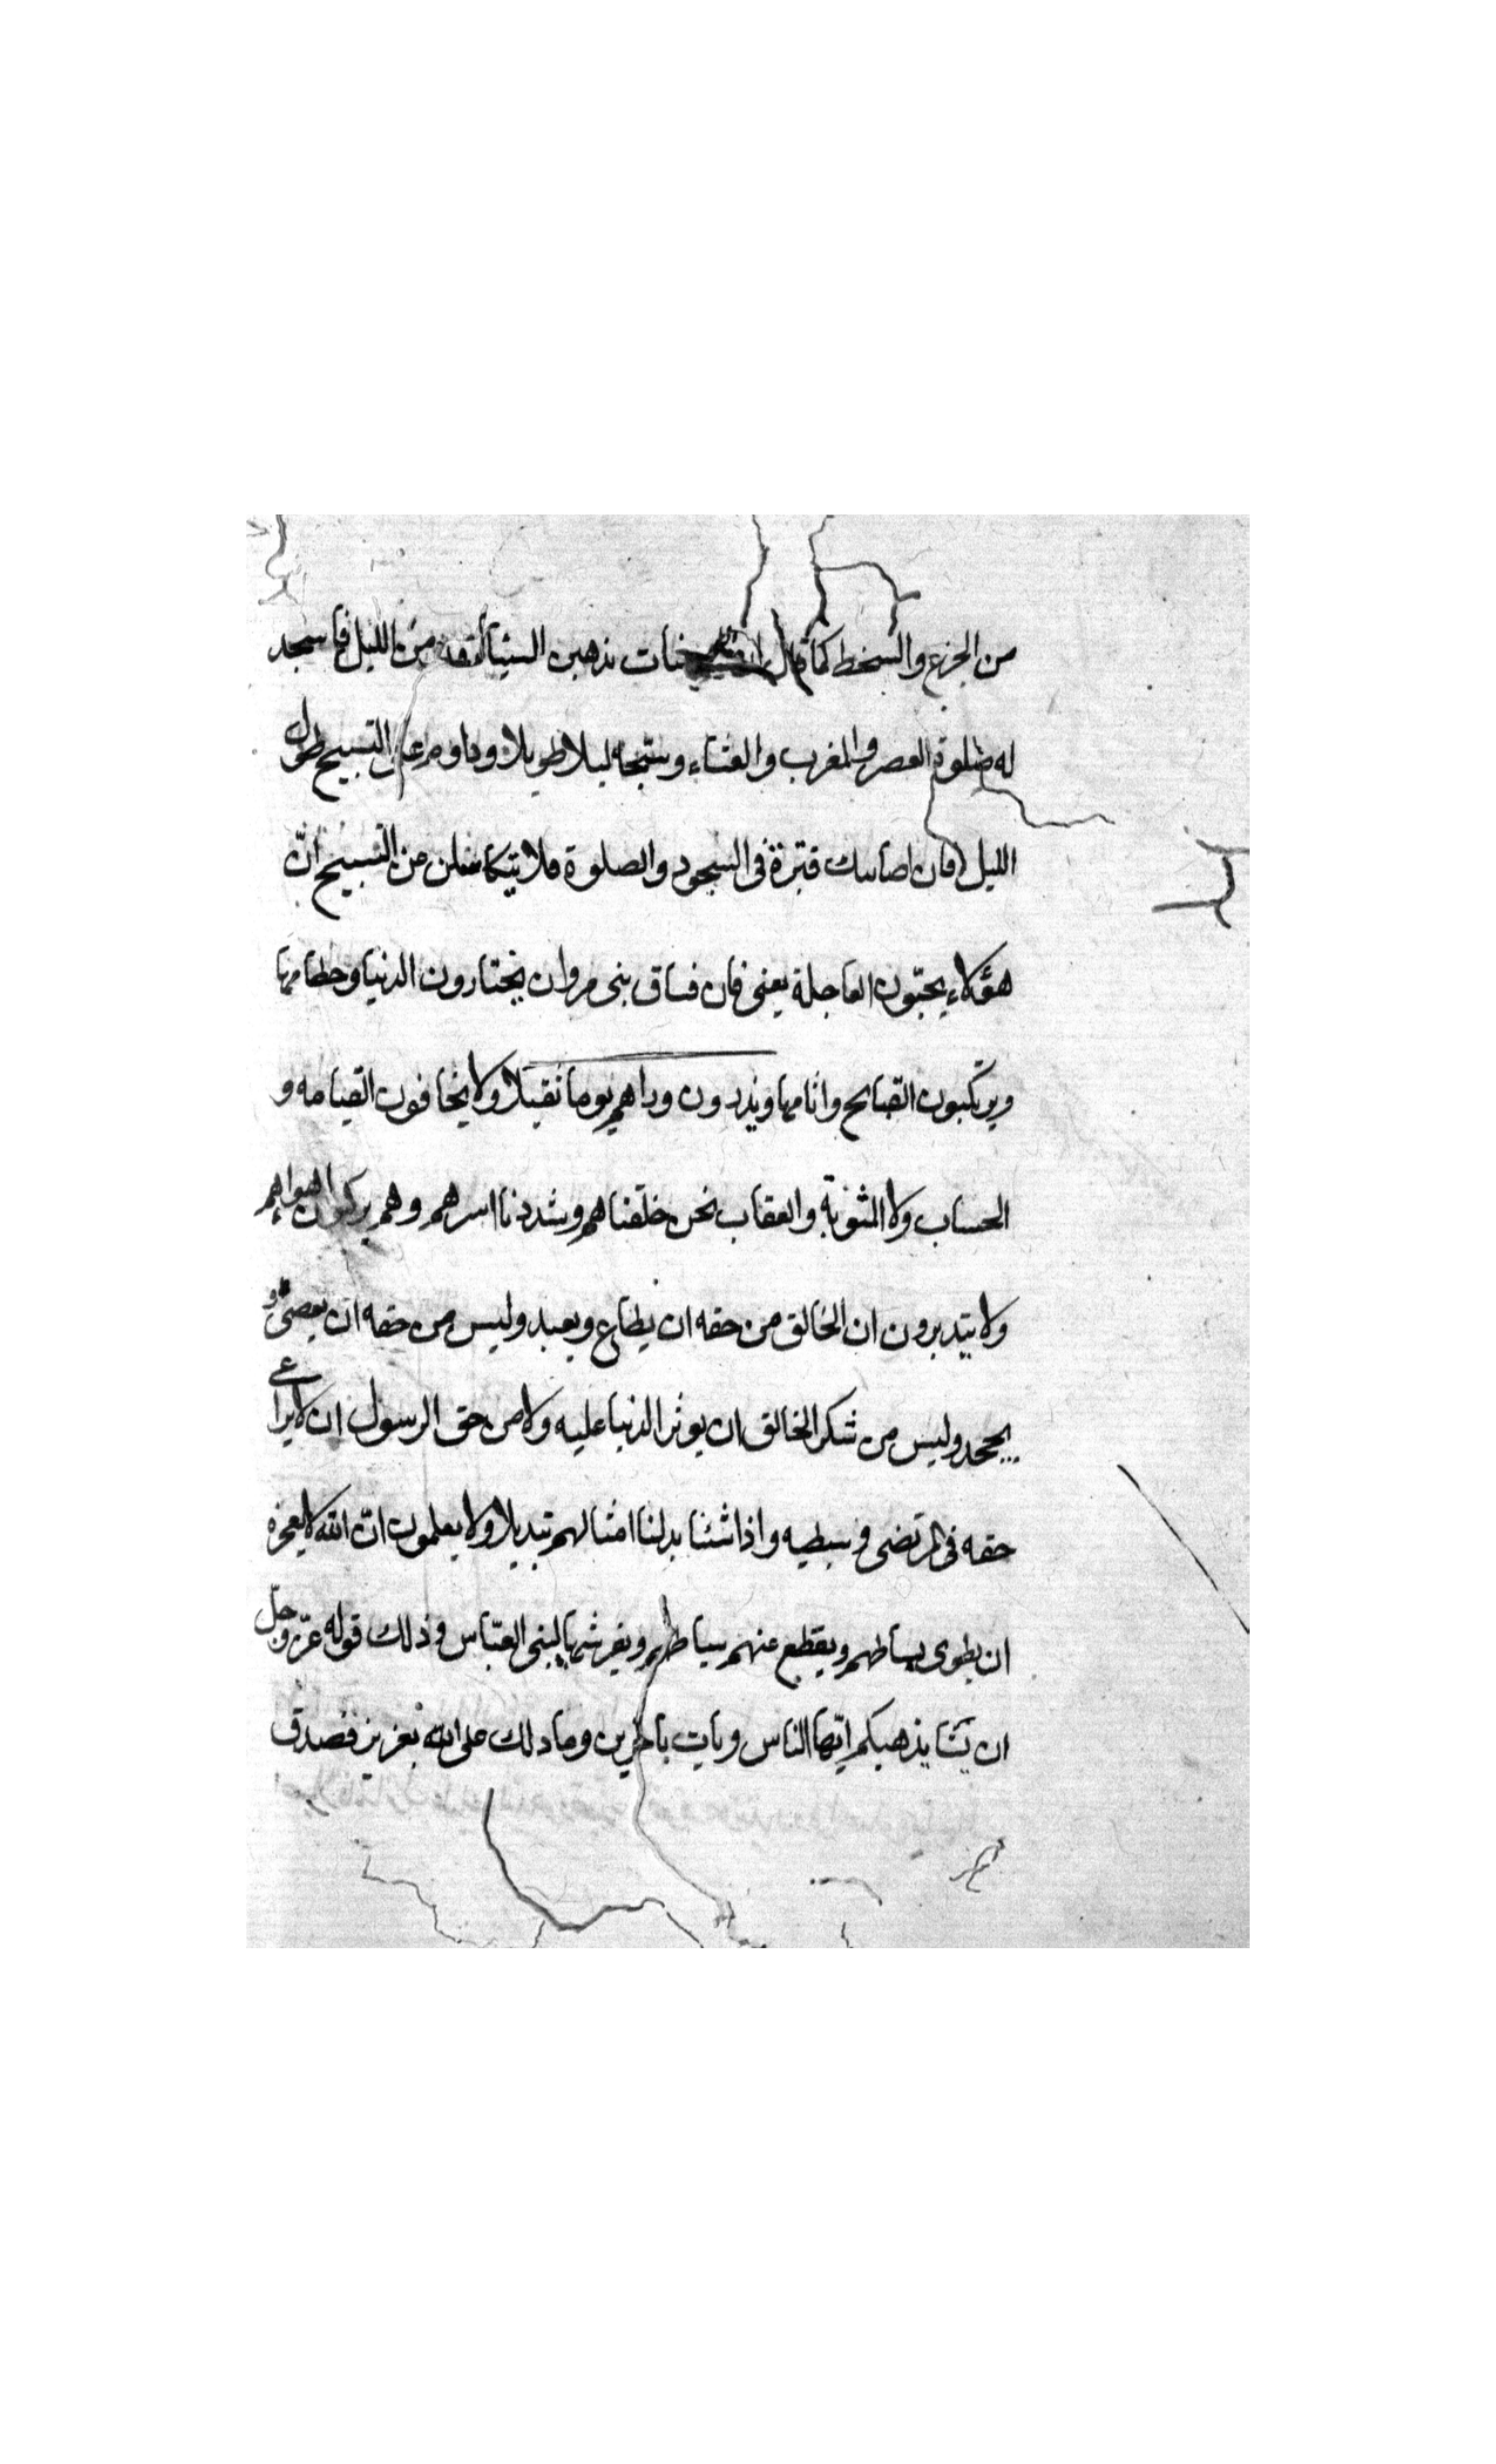 من الجزع والسخط كما قال ان الحسنات يذهبن السيئات ومن الليل فاسجد
له صلوة العصر والمغرب والعشاء وسبّحه ليلا طويلا وداوم على التسبيح طول
الليل فان اصابك فترة فى السجود والصلوة فلا تتكاسلن من التسبيح انّ
هؤلاء يحبّون العاجلة يعنى فان فساق بنى مروان يختارون الدنيا وحطامها
ويرتكبون القبايح واثامها ويذرون وراهم يوما ثقيلا ولا يخافون القيامه و
الحساب ولا المثوبة والعقاب نحن خلقناهم وشددنا اسرهم وهم يركبون اهواهم
ولا يتدبرون ان الخالق من حقه ان يطاع ويعبد وليس من حقه ان يعصى و
يجحد وليس من شكر الخالق ان يوثر الدنيا عليه ولا من حق الرسول ان لا يراعى
حقه فى المرتضى و سبطيه واذا شئنا بدلنا امثالهم تبديلا ولا يعلمون انّ الله لا يعجزه
ان يطوى بساطهم ويقطع عنهم سياطهم ويفرشها لبنى العبّاس وذلك قوله عزّ وجلّ
ان يشا يذهبكم ايّها الناس ويات باخرين وما ذلك على الله بعزيز فصدق